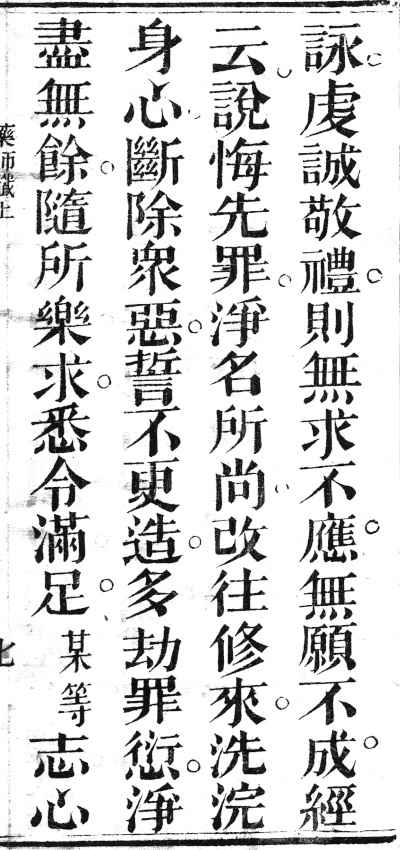 詠虔誠敬禮。則無求不應。無願不成。經
云。說悔先罪。淨名所尚。改往修來。洗浣
身心。斷除衆惡。誓不更造。多劫罪愆。淨
盡無餘。隨所樂求。悉令滿足。某等志心
藥師懺上
七